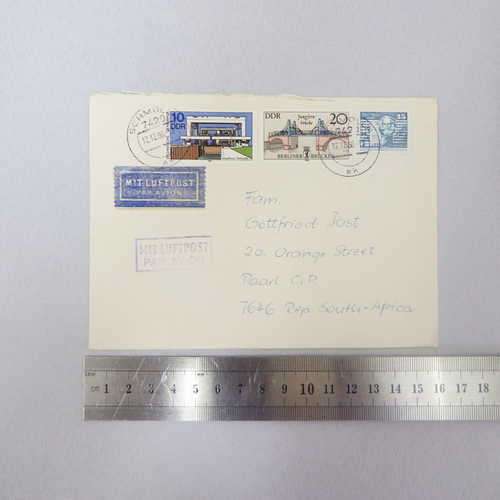 10
DDR
DDR
20
BERLINER BRÜCKEN
MIT LUFTPOST
PAR AVION
MIT LUFTPOST
Fam.
Gottfried Jost
20 Orange Street
Paarl C.P.
7646 Rep. South-Africa
1 2 3 4 5 6 7 8 9 10 11 12 13 14 15 16 17 18